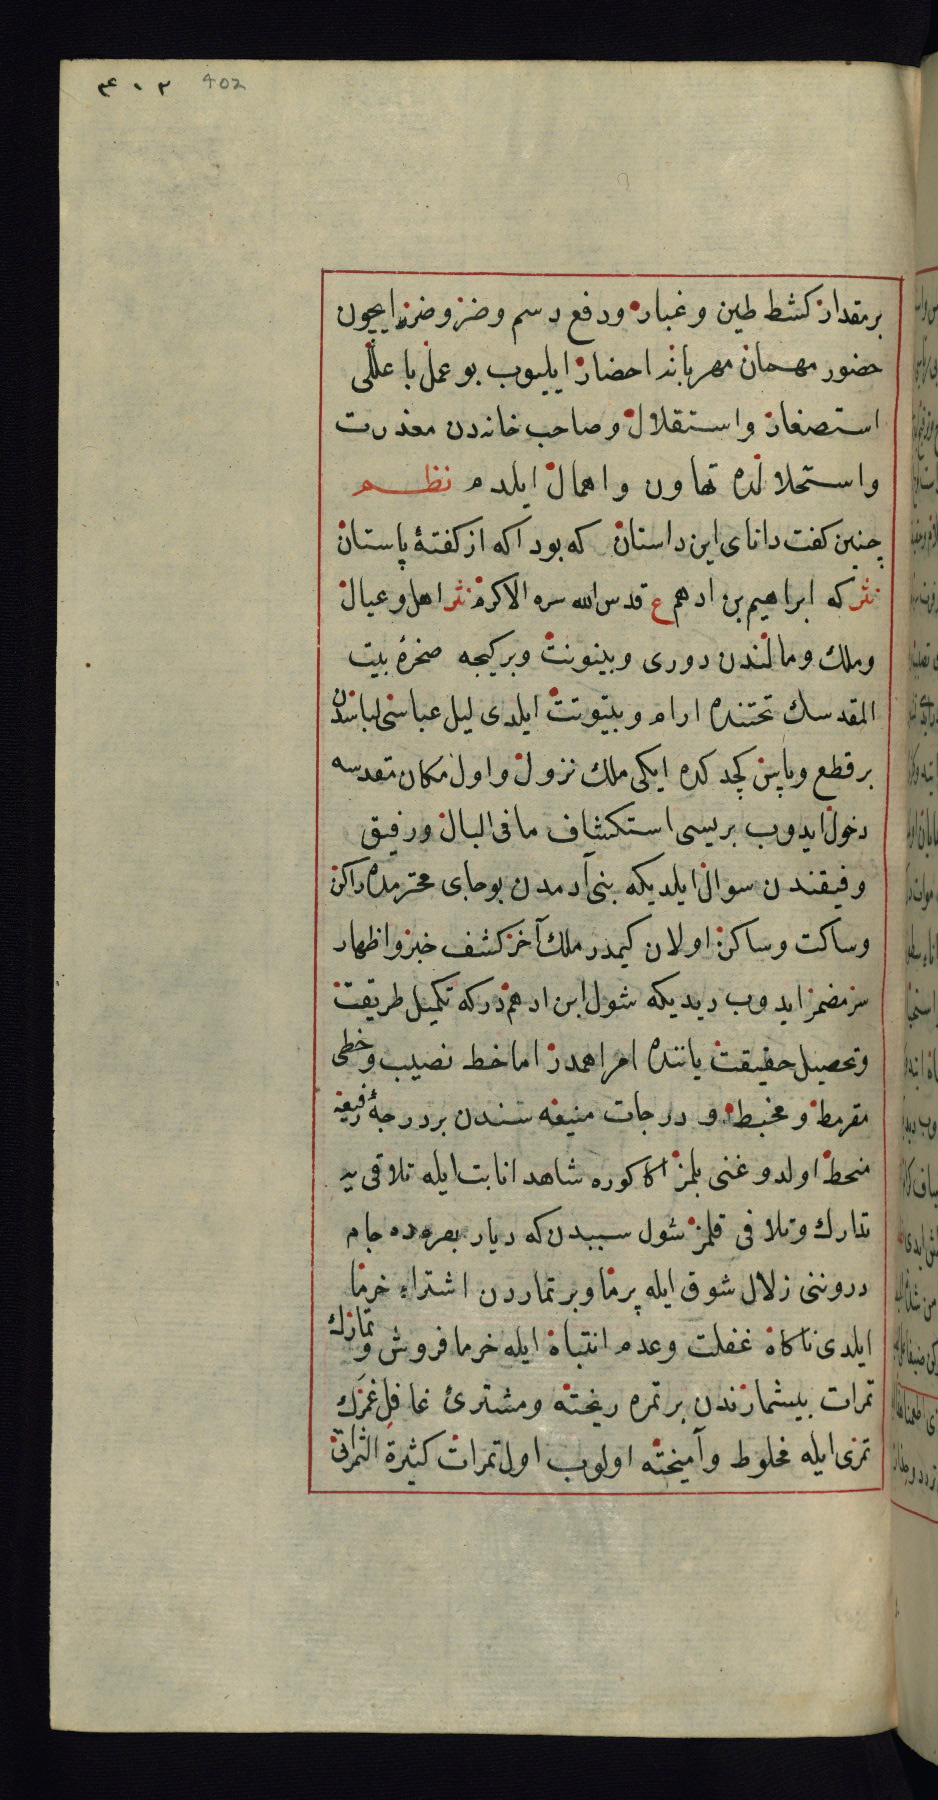 ٤٠٢ 402
بر مقدار كشط طين و غبار و دفع دسم و ضر و ضرر ايچون
حضور مهمان مهربانه احضار ايليوب بو عمل با عللى
استصغار و استقلال و صاحب خانه‌دن معذرت
و استحلالده تهاون و اهمال ايلدم نظم
چنين كفت داناى اين داستان كه بود اكه از كفتهٔ پاستان
نثر كه ابراهيم بن ادهم ع قدس الله سره الاكرم نثر اهل و عيال
و ملك و مالندن دورى و بينونت و بر كيجه صخرهٔ بيت
المقدسك تحتنده ارام و بيتوتت ايلدى ليل عباسى لباسدن
بر قطع و پاس كچدكده ايكى ملك نزول و اول مكان مقدسه
دخول ايدوب بريسى استكشاف ما فى البال و رفيق
و فيقندن سوال ايلديكه بنى آدمدن بو جاى محترمده راكن
و ساكت و ساكن اولان كيمدر ملك آخر كشف خبر و اظهار
سر مضمر ايدوب ديديكه شول ابن ادهمدركه تكميل طريقت
و تحصيل حقيقت ياننده امر اهمدر اما خط نصيب و خطى
مقرمط و مخبط و درجات منيفه سندن بر درجهٔ رفيعه
منحط اولدوغنى بلمز اكا كوره شاهد انابت ايله تلاقى يه
تدارك و تلافى قلمز شول سببدن كه ديار بصره‌ده جام
دروننى زلال شوق ايله پر ما و بر تماردن اشتراء خرما
ايلدى ناكاه غفلت و عدم انتباه ايله خرما فروش و تمارك
تمرات بيشمارندن بر تمره ريخته و مشترئ غافل غمزك
تمرى ايله مخلوط و آميخته اولوب اول تمرات كثيرة الثمراتى